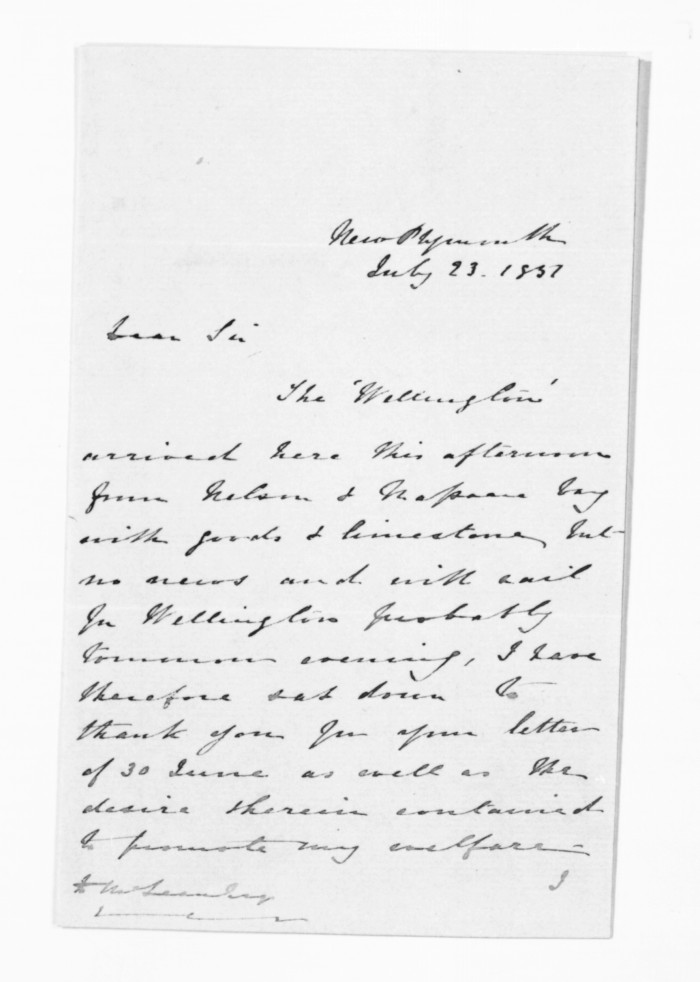 New Plymouth
July 23. 1851
Dear Sir
The 'Wellington'
arrived here this afternoon
from Nelson & Massacre bay
with goods & limestone, but
no news and will sail
for Wellington probably
tomorrow evening, I have
therefore sat down to
thank you for your letter
of 30 June as well as the
desire therein contained
to promote my welfare
I
D McLean Esq